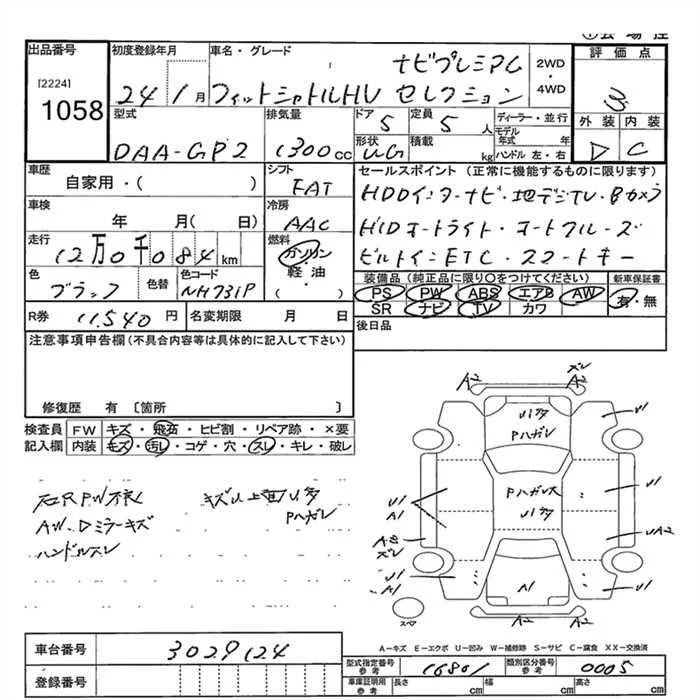 出品番号 初度登録年月 車名・グレード 評価点
[2224]
1058
24 1月 フィットシャトルHV ナビプレミアム セレクション 2WD・4WD 3
型式 排気量 ドア 定員 ディーラー・並行 外装 内装
DAA-GP2 1300cc 5 5人 モデル年式 年 C
形状 積載 ハンドル 左・右
kg
車歴 シフト セールスポイント (正常に機能するものに限ります)
自家用・( ) FAT HDDインターナビ・地デジTV・Bカメラ
車検 冷房 HIDオートライト・オートクルーズ
年 月( 日) AAC ビルトインETC・スマートキー
走行 燃料 装備品(純正品に限り○をつけてください) 新車保証書
12万0千084km ガソリン 軽油・( ) PS PW ABS エアB AW 有・無
色 色替 色コード SR ナビ TV カワ
ブラック NH731P
R券 11.540円 名変期限 月 日 後日品
注意事項申告欄(不具合内容等は具体的に記入して下さい)
修復歴 有〔箇所 〕
検査員 FW キズ・飛石・ヒビ割・リペア跡・×要
記入欄 内装 キズ・汚レ・コゲ・穴・スレ・キレ・破レ
キズ 上面U多
Pハガレ
ハンドルスレ
A2 ズレ A2
U1多
Pハガレ
U1
Pハガレ大
U1多
U1
A1
U1
A2
ズレ
UA2
U1
A1
A1
U1
A2 A2
スペア
A-キズ E-エクボ U-凹み W-補修跡 S-サビ C-腐食 XX-交換済
車台番号 3029124
型式指定番号 参考 16801 類別区分番号 参考 0005
登録番号
車庫証明用 参考 長さ cm 幅 cm 高さ cm